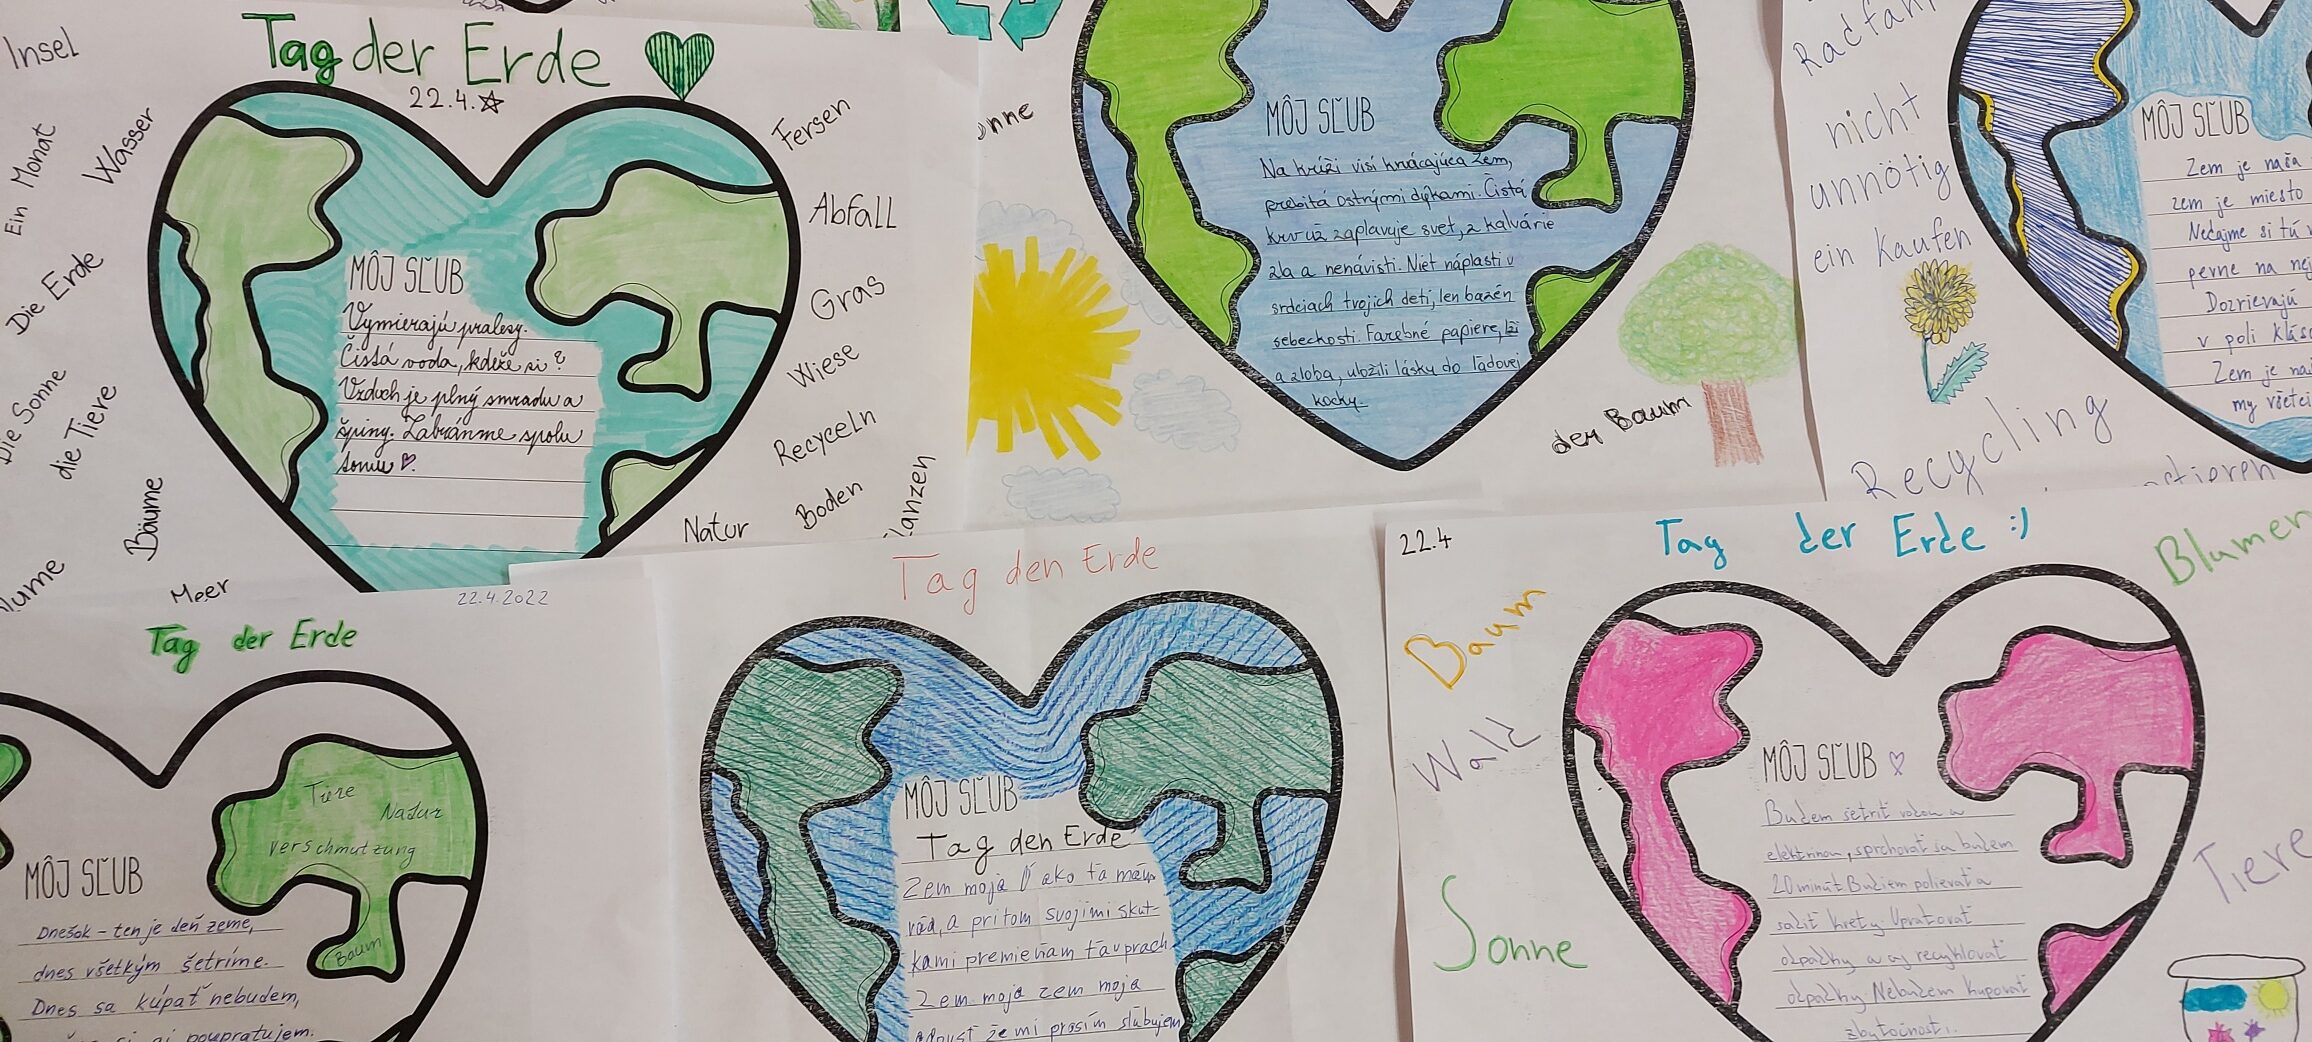 Insel
Tag der Erde
22.4.
Ein Monat
Wasser
Die Erde
Die Sonne
die Tiere
Bäume
Meer
Fersen
Abfall
Gras
Wiese
Recyceln
Boden
Natur
MÔJ SĽUB
Vymierajú pralesy.
Čistá voda, kdeže si?
Vzduch je plný smradu a
špiny. Zabráňme spolu
tomu
der Baum
MÔJ SĽUB
Na kríži visí krvácajúca Zem,
prebitá ostrými dýkami. Čistá
krv už zaplavuje svet, z kalvárie
zla a nenávisti. Niet náplasti v
srdciach tvojich detí, len bazén
sebeckosti. Farebné papiere, lži
a zloba, uložili lásku do ľadovej
kocky.
nicht
unnötig
ein kaufen
Recycling
MÔJ SĽUB
Zem je naša
zem je miesto
Nedajme si tú
pevne na nej
Dozrievajú
v poli
Zem je
my všetci
22.4.2022
Tag der Erde
Tiere
Natur
verschmutzung
Baum
MÔJ SĽUB
Dnešok - ten je deň zeme,
dnes všetkým šetríme.
Dnes sa kúpať nebudem,
si aj poupratujem.
Tag den Erde
MÔJ SĽUB
Tag den Erde
Zem moja ako ťa mám
rád, a pritom svojimi skut-
kami premieňam ťa v prach
Zem moja zem moja
odpusť že mi prosím sľubujem
22.4
Tag der Erde :)
Blumen
Baum
Wald
Sonne
Tiere
MÔJ SĽUB
Budem šetriť vodou a
elektrinou, sprchovať sa budem
20 minút Budem polievať a
sadiť kvety. Upratovať
odpadky a aj recyklovať
odpadky Nebudem kupovať
zbytočnosti.